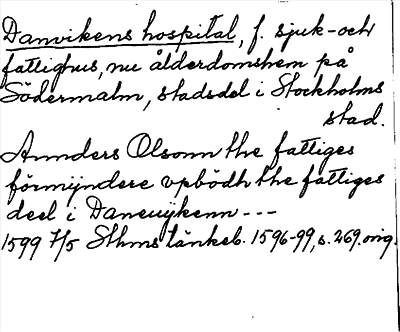 Danvikens hospital, f. sjuk- och
fattighus, nu ålderdomshem på
Södermalm, stadsdel i Stockholms
stad.
Annders Olsonn the fattiges
förmyndere vpbödh the fattiges
deel i Daneuijkenn ---
1599 7/5 Sthms tänkeb. 1596-99, s. 269. orig.